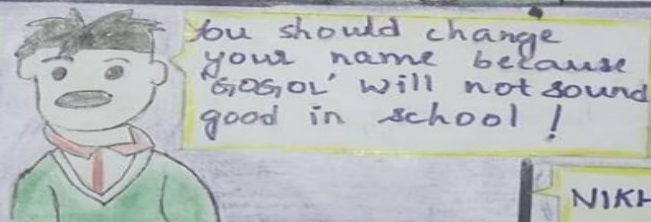 You should change
your name because
'GOGOL' will not sound
good in school !
NIKH